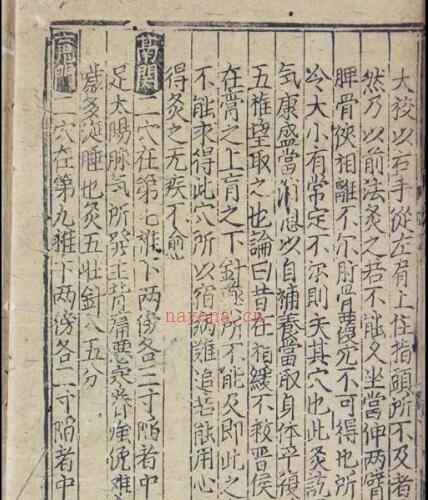 大校以右手從左肩上住指頭所不及者
然乃以前法灸之若不能久坐當伸兩臂
脾骨使相離不尔胛骨覆穴不可得也所
今大小有常定不尔則失其穴也此灸訖
气康盛當消息以自補養當取身体平復
五椎望取之也論曰昔在指緩不救晉侯
在膏之上肓之下針藥所不能及即此之
不能求得此穴所以宿病難追若能用心
得灸之无疾不愈
鬲関 二穴在第七椎下兩傍各三寸陷者中
足太陽脉气所發主背痛惡寒脊強俛難
噦多涎唾也灸五壯針入五分
䰟門 二穴在第九椎下兩傍各二寸陷者中
nayana.cn